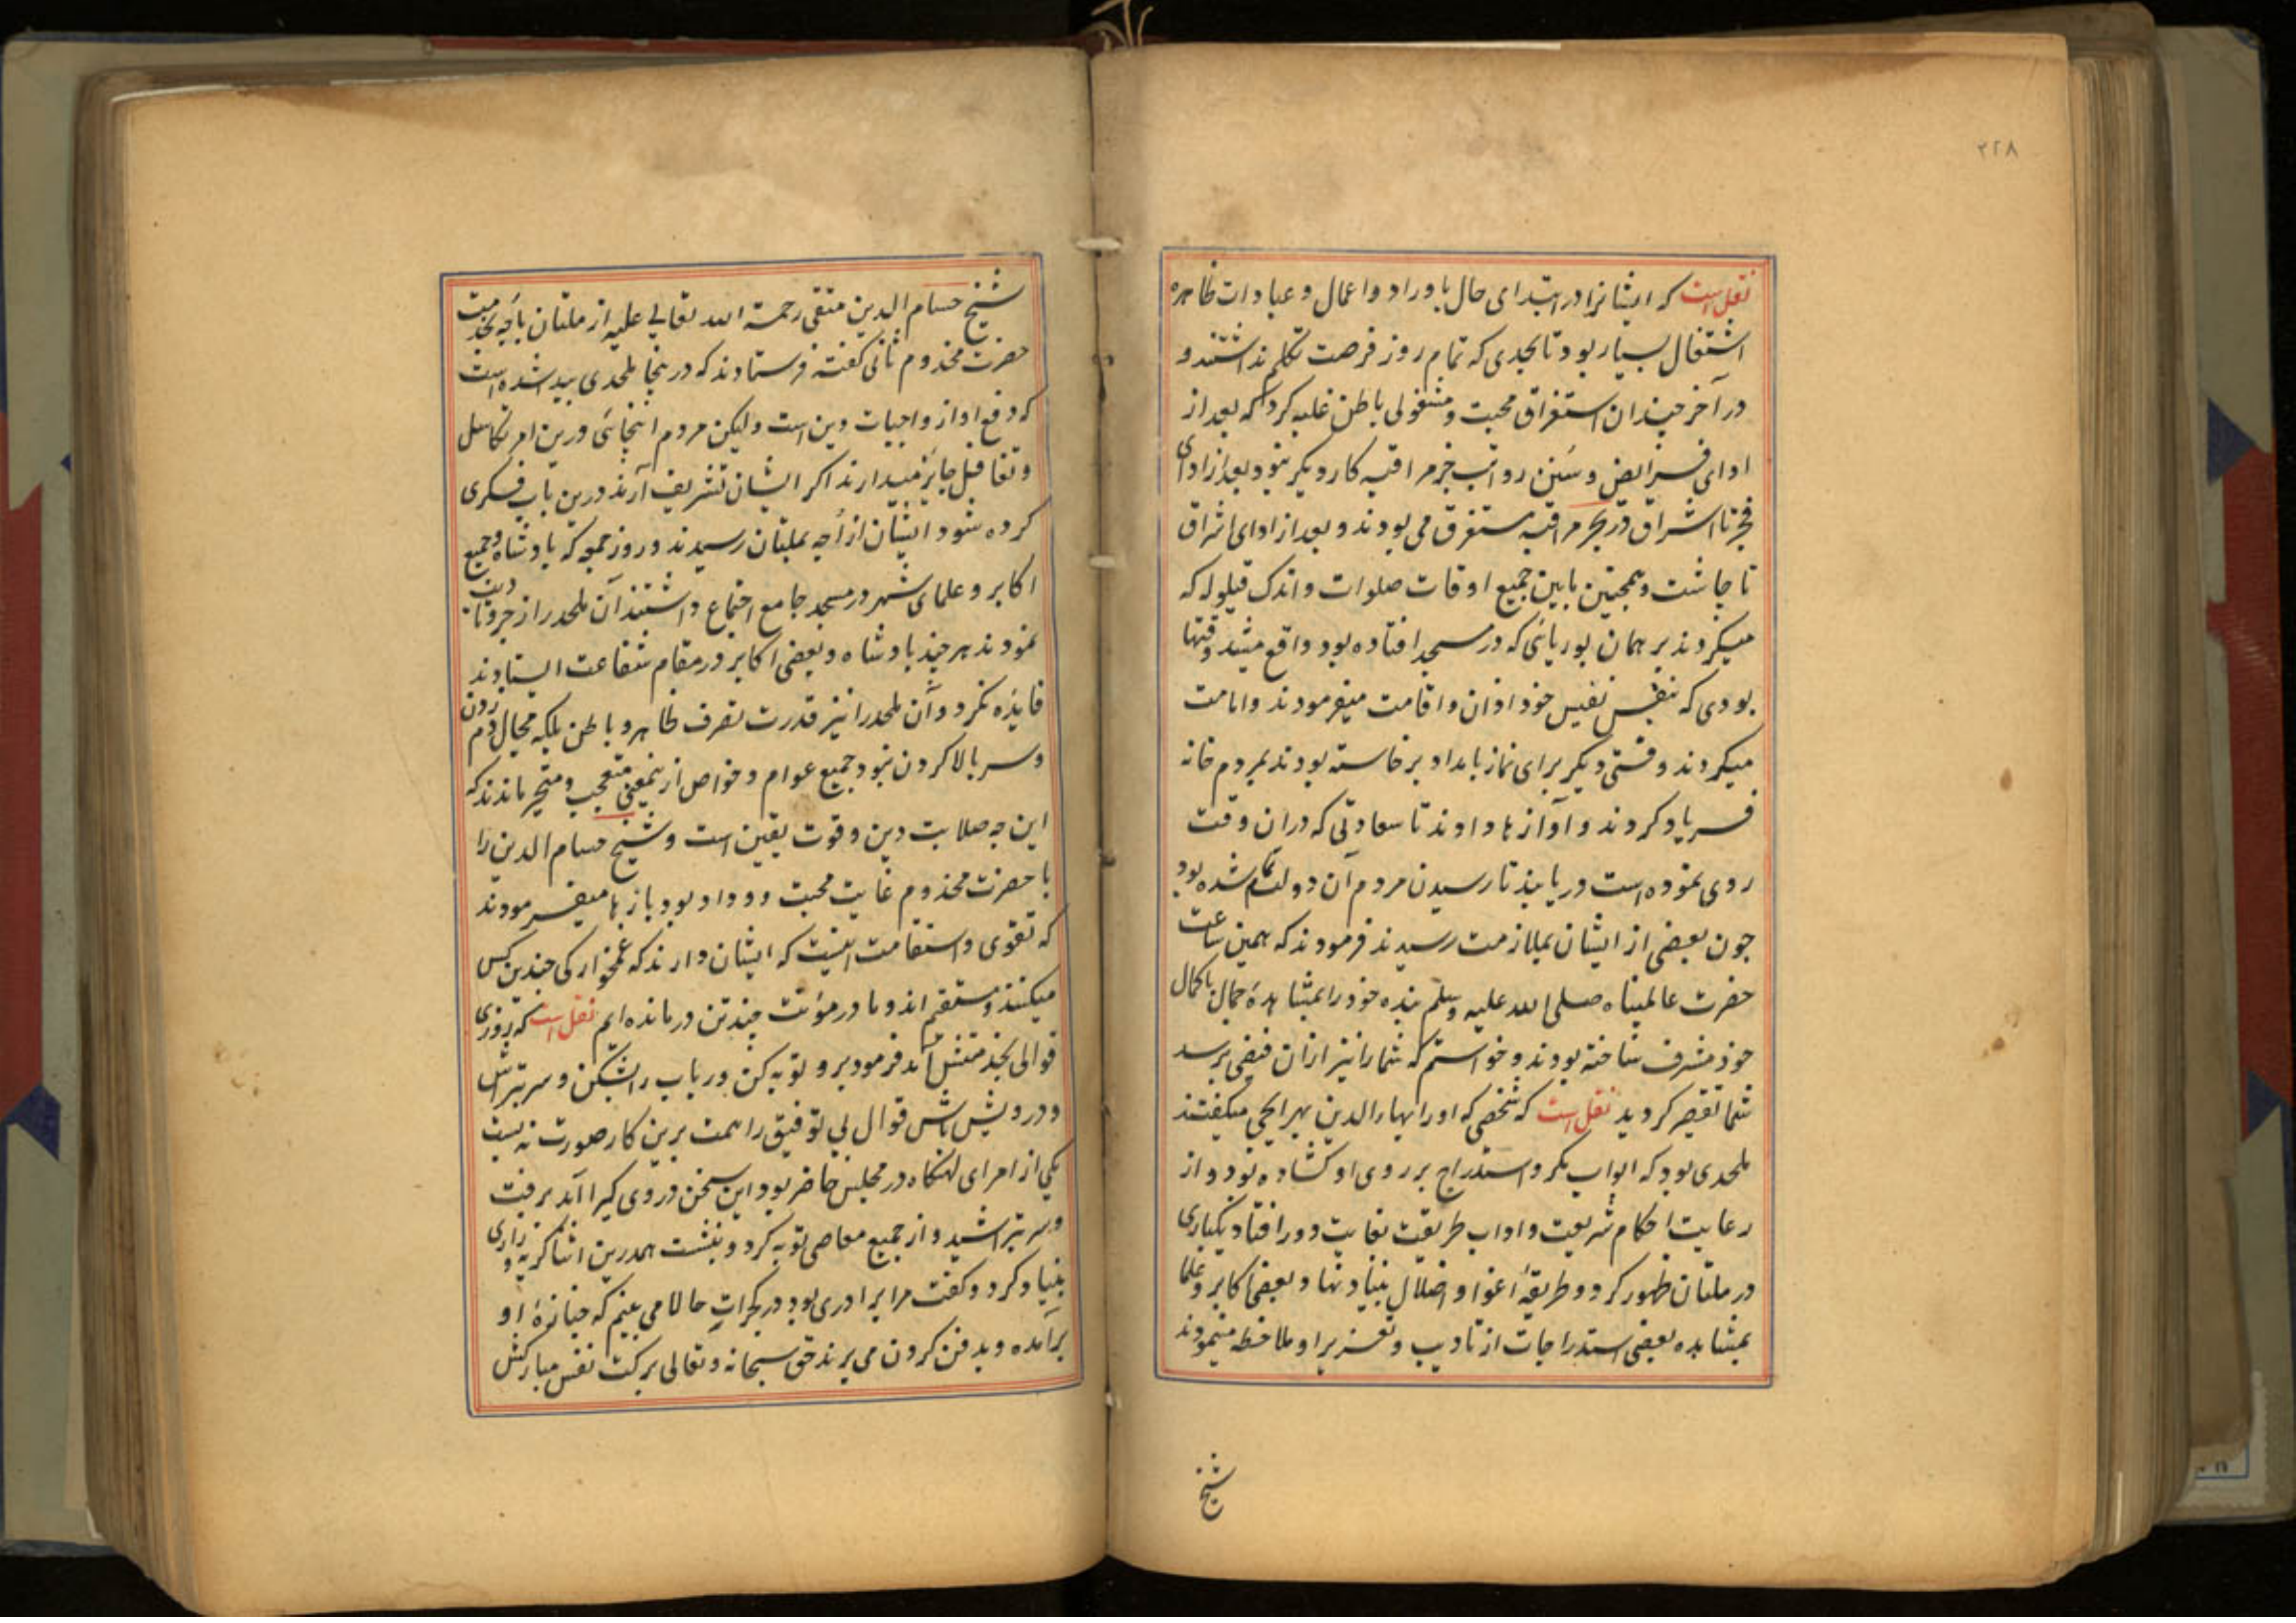 ۲۲۸
نقل است که ایشانرا در ابتدای حال باوراد و اعمال و عبادات ظاهره
اشتغال بسیار بود تا بحدی که تمام روز فرصت تکلم نداشتند و
در آخر چندان استغراق محبت و مشغولی باطن غلبه کرد که بعد از
ادای فرایض و سنن رواتب جز مراقبه کار دیگر نبود بعد از ادای
فجر تا اشراق در بحر مراقبه مستغرق می بودند و بعد از ادای اشراق
تا چاشت و همچنین مابین جمیع اوقات صلوات و اندک قیلوله که
میکردند بر همان بوریائی که در مسجد افتاده بود واقع میشد وقتها
بودی که بنفس نفیس خود اذان و اقامت میفرمودند و امامت
میکردند وقتی دیگر برای نماز بامداد برخاسته بودند بمردم خانه
فریاد کردند و آوازها دادند تا سعادتی که دران وقت
روی نموده است دریابند تا رسیدن مردم آن دولت تمام شده بود
چون بعضی از ایشان بملازمت رسیدند فرمودند که همین ساعت
حضرت عالمپناه صلی الله علیه وسلم بنده خود را بمشاهدهٔ جمال باکمال
خود مشرف ساخته بودند و خواستم که شما را نیز ازان فیضی برسد
شما تقصیر کردید نقل است که شخصی که او را بهاءالدین بهرایچی میگفتند
ملحدی بود که ابواب مکر و استدراج بر روی او کشاده بود و از
رعایت احکام شریعت و اداب طریقت بغایت دور افتاد یکباری
در ملتان ظهور کرد و طریقهٔ اغوا و اضلال بنیاد نهاد و بعضی اکابر و علما
بمشاهده بعضی استدراجات از تادیب و تعزیر او ملاحظه مینمودند
شیخ
شیخ حسام الدین متقی رحمة الله تعالی علیه از ملتان باچه بخدمت
حضرت مخدوم ثانی گفته فرستادند که درینجا ملحدی پیدا شده است
که دفع او از واجبات دین است ولیکن مردم اینجائی درین امر تکاسل
و تغافل جایز میدارند اکر ایشان تشریف آرند درین باب فکری
کرده شود ایشان از اچه بملتان رسیدند و روز جمعه که بادشاه و جمیع
اکابر و علمای شهر در مسجد جامع اجتماع داشتند آن ملحد را زجر و تادیب
نمودند هر چند بادشاه و بعضی اکابر در مقام شفاعت ایستادند
فایده نکرد و آن ملحد را نیز قدرت تصرف ظاهر و باطن بلکه مجال دم زدن
و سر بالا کردن نبود جمیع عوام و خواص ازینمعنی متعجب و متحیر ماندند که
این چه صلابت دین و قوت یقین است و شیخ حسام الدین را
با حضرت مخدوم غایت محبت و وداد بود بازها میفرمودند
که تقوی و استقامت اینست که ایشان دارند که غمخوارکی چندین کس
میکنند و مستقیم اند و ما در مؤنت چند تن درمانده ایم نقل است که روزی
قوالی بخدمتش آمد فرمود برو توبه کن و رباب را بشکن و سر بتراش
و درویش باش قوال بی توفیق را همت برین کار صورت نه بست
یکی از امرای لنکاه در مجلس حاضر بود این سخن در وی کیرا آمد برفت
و سر بتراشید و از جمیع معاصی توبه کرد و بنشست همدرین اثنا کریه و زاری
بنیاد کرد و کفت مرا برادری بود در کجرات حالا می بینم که جنازهٔ او
برآمده و بدفن کردن می برند حق سبحانه و تعالی ببرکت نفس مبارکش